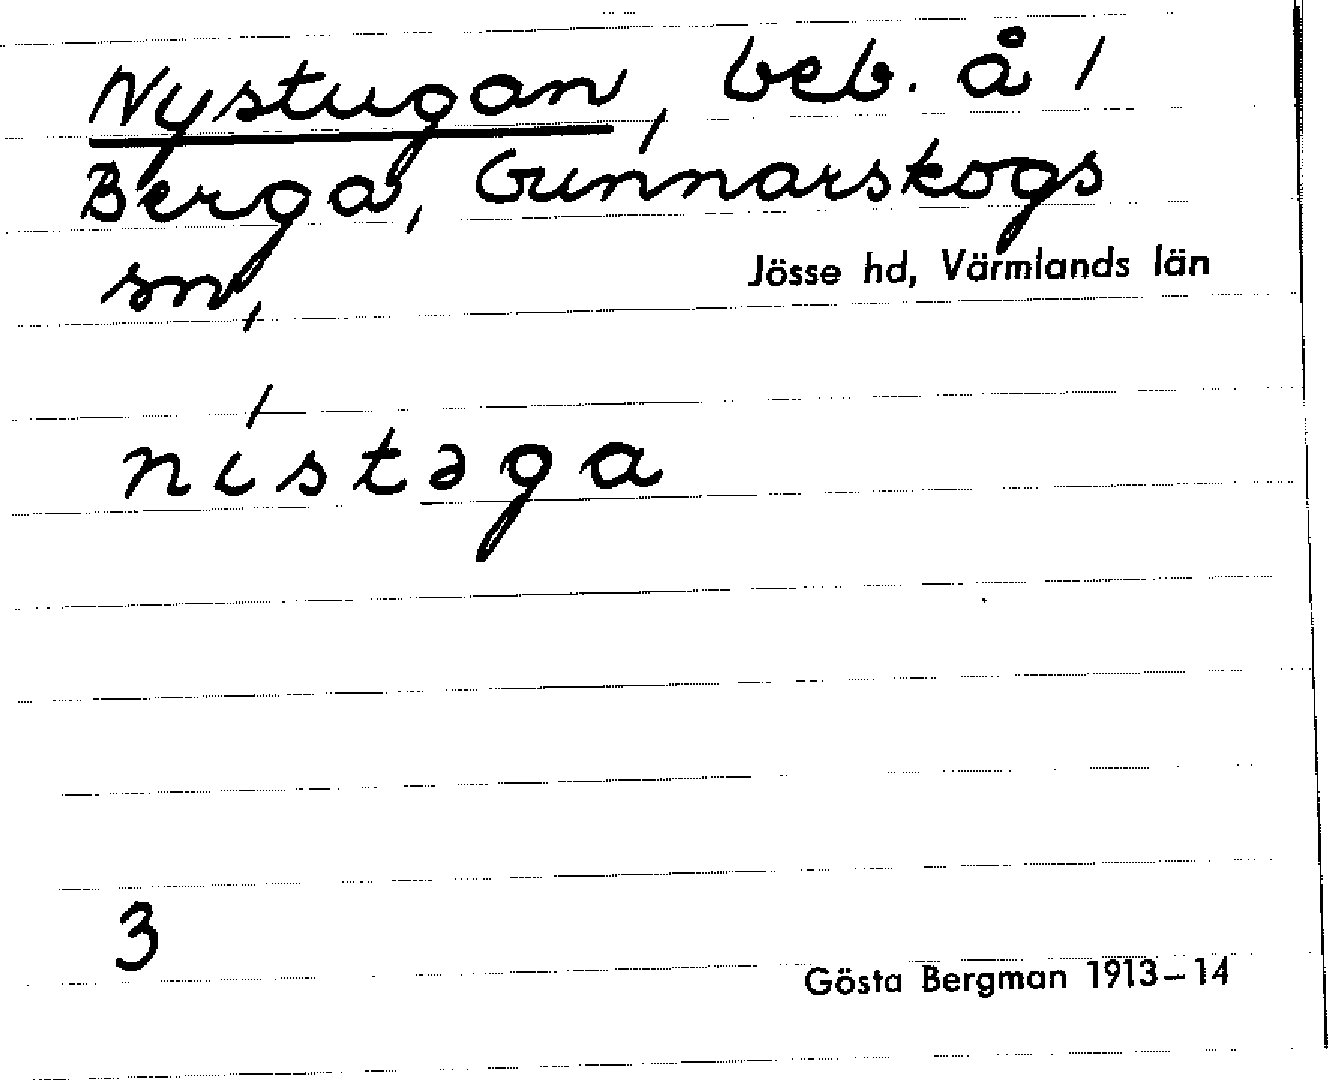 Nystugan, beb. å /
Berga, Gunnarskogs
sn,
Jösse hd, Värmlands län
nístəga
3
Gösta Bergman 1913–14